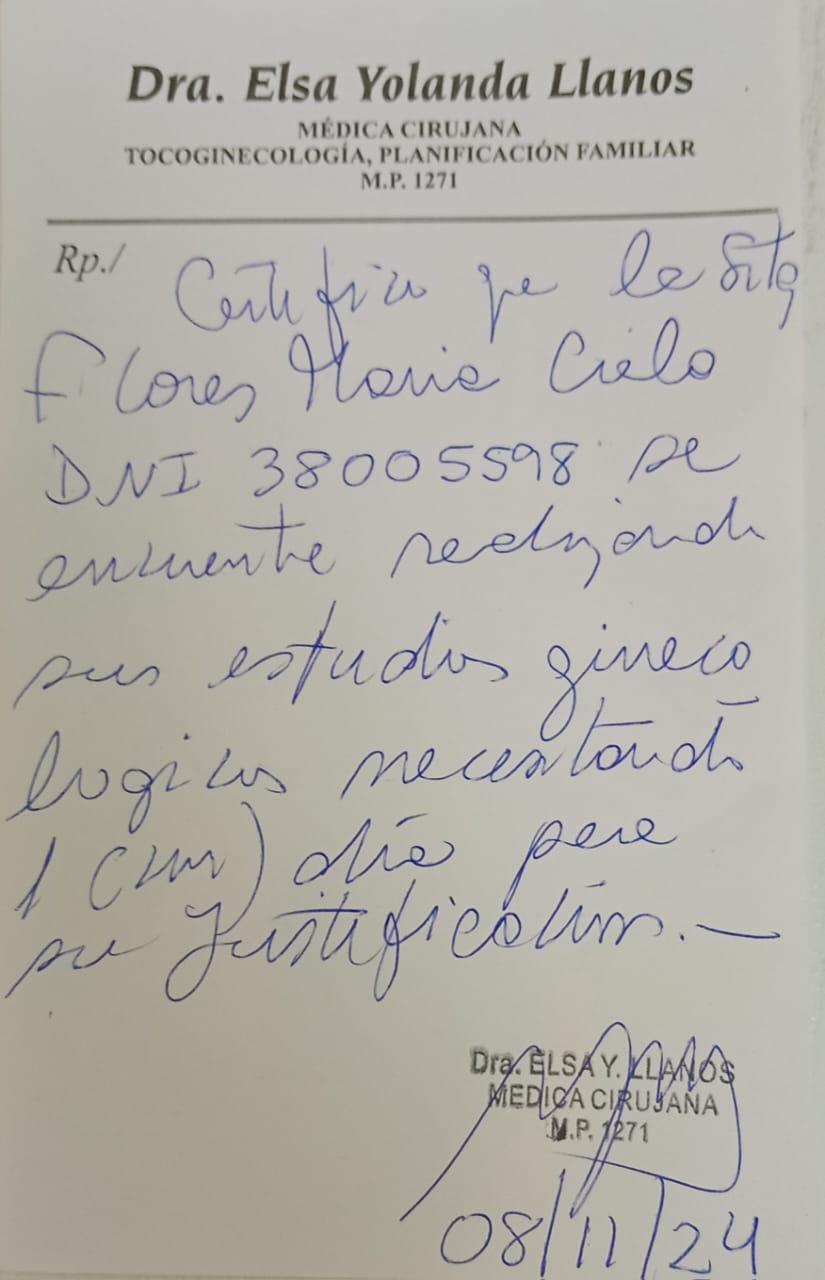 Dra. Elsa Yolanda Llanos
MÉDICA CIRUJANA
TOCOGINECOLOGÍA, PLANIFICACIÓN FAMILIAR
M.P. 1271
Rp./ Certifico que la Srta
Flores Maria Cielo
DNI 38005598 se
encuentra realizando
sus estudios gineco
logicos necesitando
1 (un) día para
su Justificativo.—
Dra. ELSA Y. LLANOS
MEDICA CIRUJANA
M.P. 1271
08/11/24